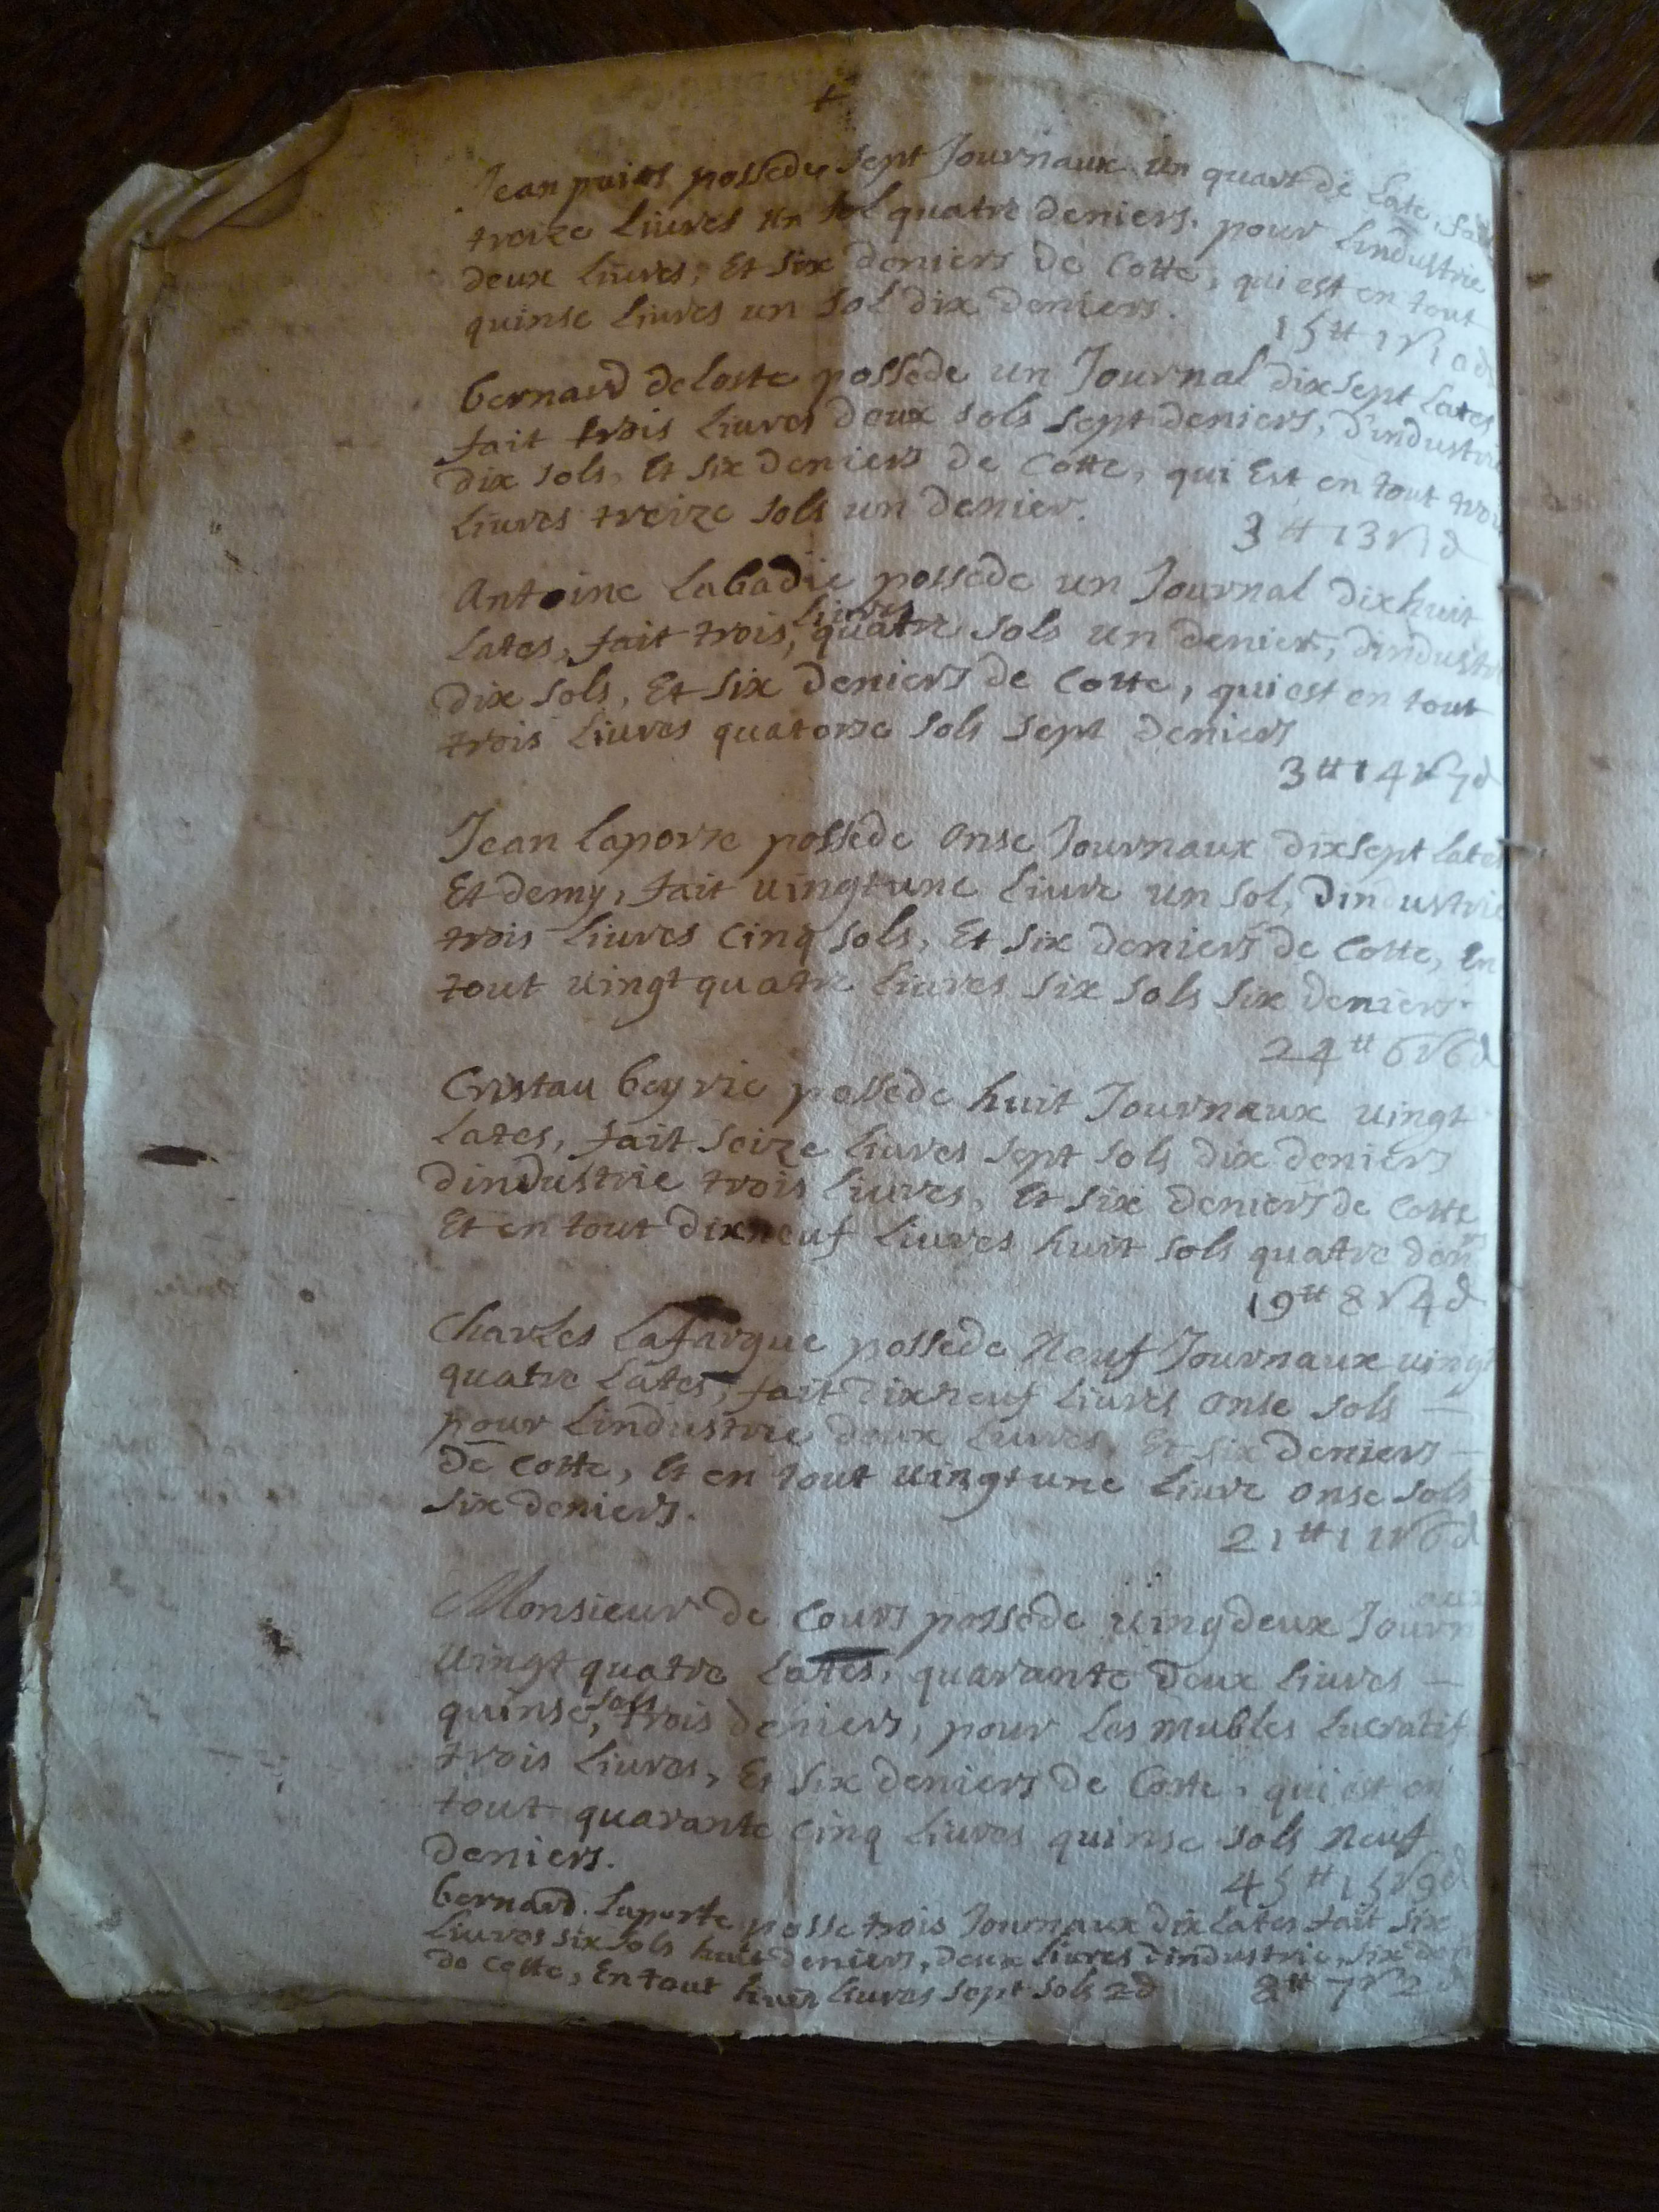 +
Jean puios possede sept Journaux un quart de Late, fait
treize Liures un sol quatre deniers. pour Lindustrie
deux Liures, Et six deniers de Cotte, qui est en tout
quinse Liures un sol dix deniers.
15 ₶ 1 s 10 d
bernard deloste possede un Journal dixsept Lates
fait trois Liures deux sols sept deniers, d'industrie
dix sols, Et six deniers de Cotte, qui Est en tout trois
Liures treize sols un denier.
3 ₶ 13 s 1 d
Antoine Labadie possede un Journal dixhuit
Lates, fait trois, Liures quatre sols un denier, dindustrie
dix sols, Et six deniers de Cotte, qui est en tout
trois Liures quatorze sols sept deniers
3 ₶ 14 s 7 d
Jean Laporte possede onse Journaux dixsept Lates
Et demy, fait uingtune Liure un sol, dindustrie
trois Liures Cinq sols, Et six deniers de Cotte, En
tout uingt quatre Liures six sols six deniers.
24 ₶ 6 s 6 d
Cristau beyrie possede huit Journaux uingt
Lates, fait seize Liures sept sols dix deniers
dindustrie trois Liures, Et six deniers de Cotte
Et en tout dixneuf Liures huit sols quatre den rs
19 ₶ 8 s 4 d
Charles Lafargue possede Neuf Journaux uingt
quatre Lates, fait dixneuf Liures onse sols —
pour Lindustrie deux Liures, Et six deniers —
De Cotte, Et en tout uingtune Liure onse sols
six deniers.
21 ₶ 11 s 6 d
Monsieur de Cours possede uingdeux Journaux
Uingt quatre Lates, quarante deux Liures —
quinse, sols trois deniers, pour Les mubles Lucratif
trois Liures, Et six deniers de Cotte, qui est en
tout quarante cinq Liures quinse sols neuf
deniers.
45 ₶ 15 s 9 d
bernard. Laporte posse trois Journaux dix Lates fait six
Liures six sols huit deniers, deux Liures dindustrie, six den
de Cotte, En tout huit Liures sept sols 2 d 8 ₶ 7 s 2 d